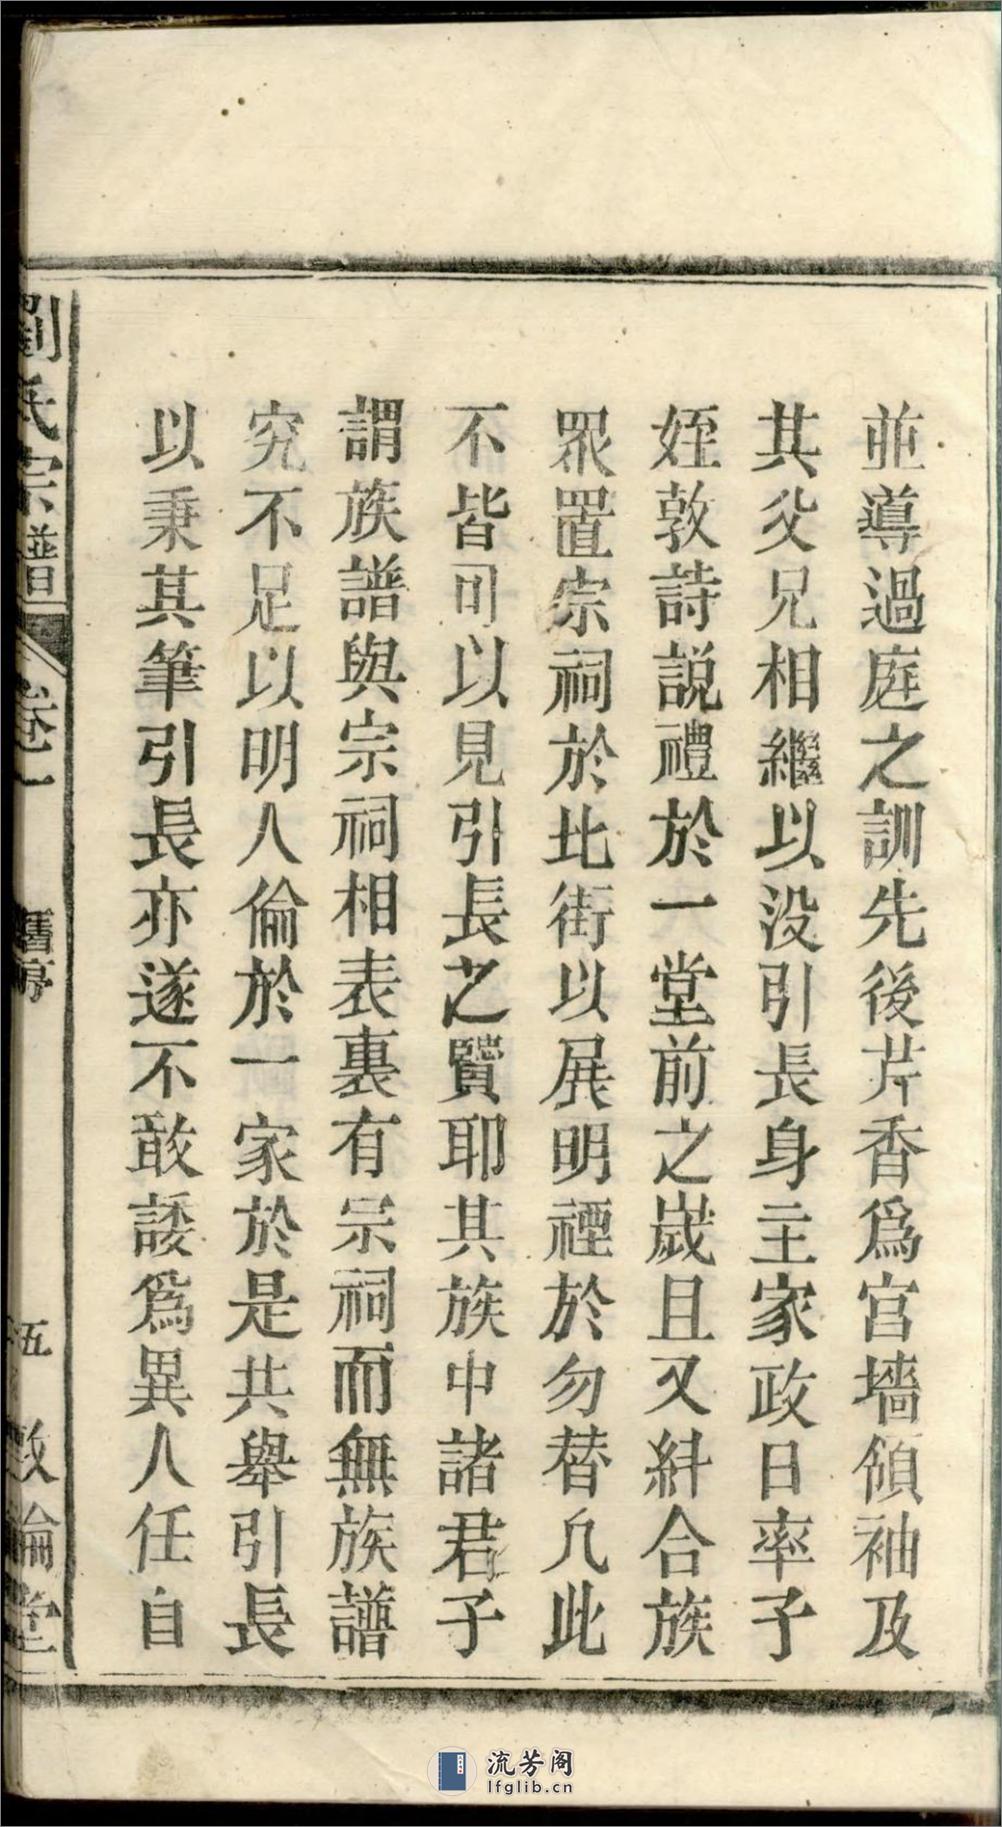 並導過庭之訓先後芹香爲宫墻領袖及
其父兄相繼以没引長身主家政日率子
姪敦詩説禮於一堂前之嵗且又紏合族
眾置宗祠於北街以展明禋於勿替凢此
不皆可以見引長之賢耶其族中諸君子
謂族譜與宗祠相表裏有宗祠而無族譜
究不足以明人倫於一家於是共舉引長
以秉其筆引長亦遂不敢諉爲異人任自
劉氏宗譜 卷一 舊序 五 敦倫堂
流芳阁
lfglib.cn